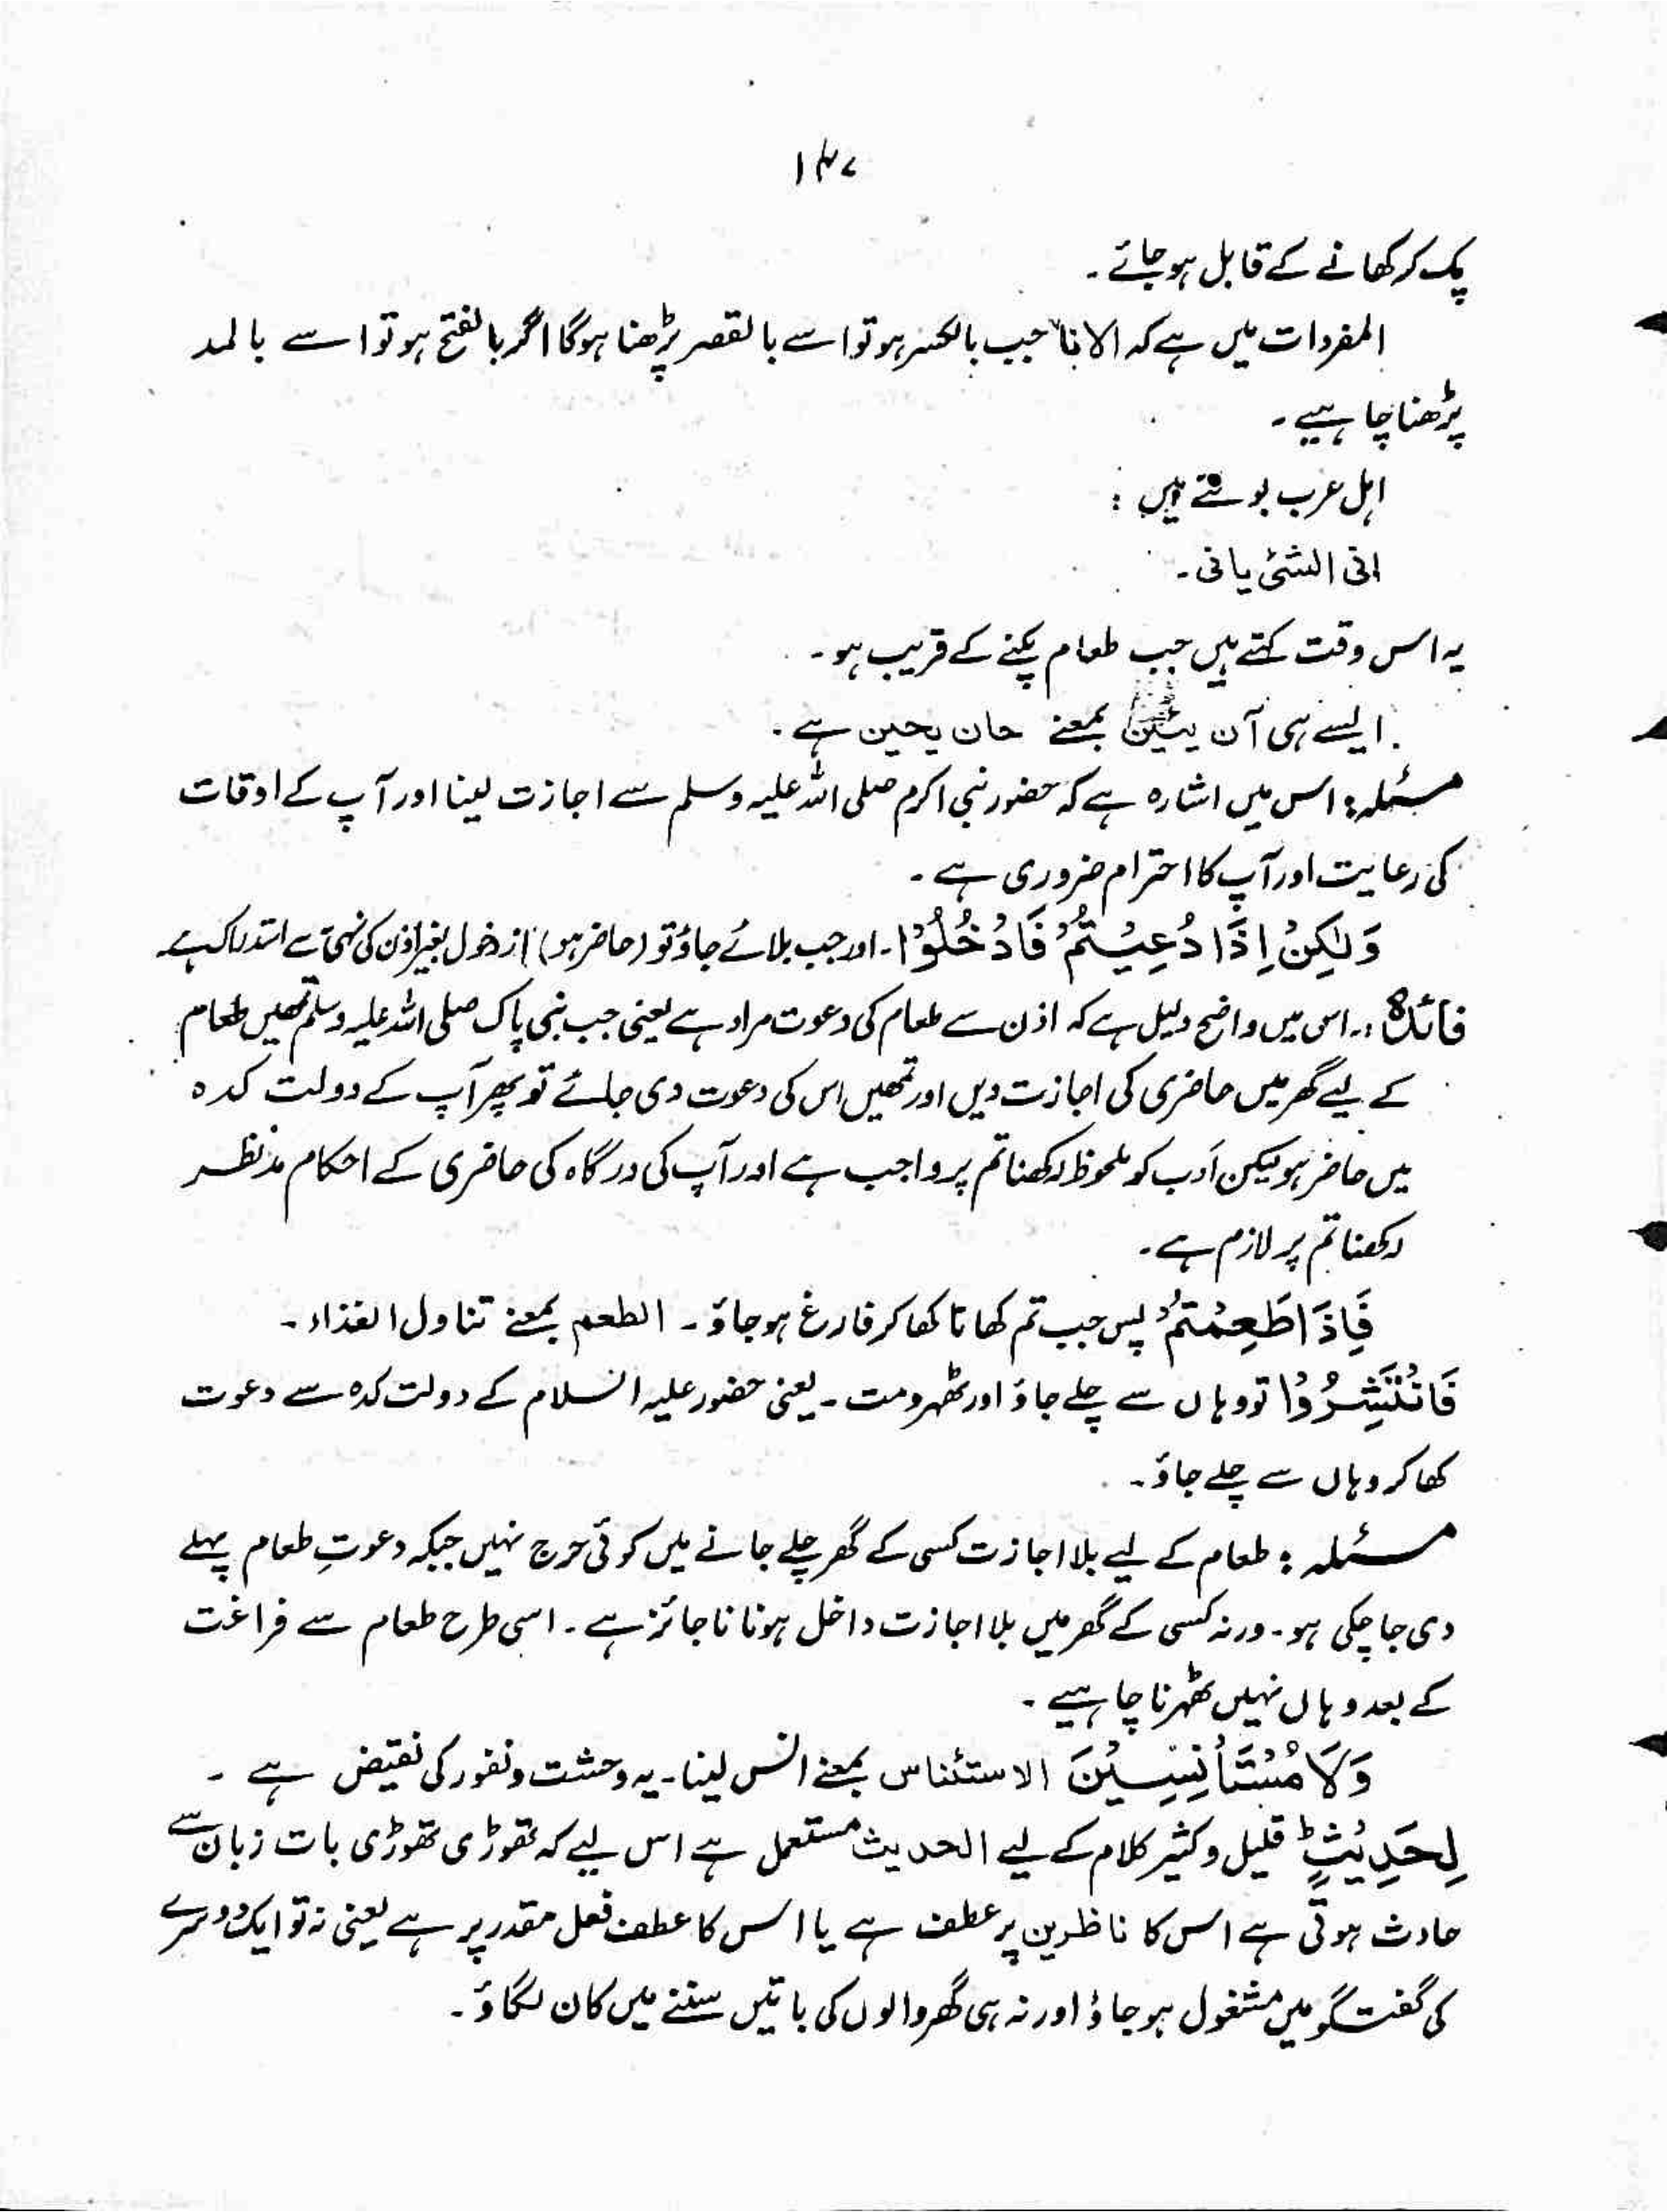 ۱۴۷
پک کر کھانے کے قابل ہو جائے۔
المفردات میں ہے کہ الانا جب بالکسر ہو تو اسے بالقصر پڑھنا ہوگا اگر بالفتح ہو تو اسے بالمد
پڑھنا چاہیے۔
اہل عرب بولتے ہیں :
انی الشئ یانی۔
یہ اس وقت کہتے ہیں جب طعام پکنے کے قریب ہو۔
ایسے ہی آن یئین بمعنے حان یحین ہے۔
مسئلہ: اس میں اشارہ ہے کہ حضور نبی اکرم صلی اللہ علیہ وسلم سے اجازت لینا اور آپ کے اوقات
کی رعایت اور آپ کا احترام ضروری ہے۔
وَلٰكِنْ اِذَا دُعِيْتُمْ فَادْخُلُوْا۔ اور جب بلائے جاؤ تو (حاضر ہو) از دخول بغیر اذن کی نہی سے استدراک ہے۔
فائدہ :۔ اس میں واضح دلیل ہے کہ اذن سے طعام کی دعوت مراد ہے یعنی جب نبی پاک صلی اللہ علیہ وسلم تمھیں طعام
کے لیے گھر میں حاضری کی اجازت دیں اور تمھیں اس کی دعوت دی جائے تو پھر آپ کے دولت کدہ
میں حاضر ہو لیکن اَدب کو ملحوظ رکھنا تم پر واجب ہے اور آپ کی درگاہ کی حاضری کے احکام مدنظر
رکھنا تم پر لازم ہے۔
فَاِذَا طَعِمْتُمْ پس جب تم کھانا کھا کر فارغ ہو جاؤ۔ الطعم بمعنے تناول الغذاء۔
فَانْتَشِرُوْا تو وہاں سے چلے جاؤ اور ٹھہرو مت۔ یعنی حضور علیہ السلام کے دولت کدہ سے دعوت
کھا کر وہاں سے چلے جاؤ۔
مسئلہ : طعام کے لیے بلا اجازت کسی کے گھر چلے جانے میں کوئی حرج نہیں جبکہ دعوتِ طعام پہلے
دی جا چکی ہو۔ ورنہ کسی کے گھر میں بلا اجازت داخل ہونا ناجائز ہے۔ اسی طرح طعام سے فراغت
کے بعد وہاں نہیں ٹھہرنا چاہیے۔
وَلَا مُسْتَاْنِسِيْنَ الاستئناس بمعنے انس لینا۔ یہ وحشت و نفور کی نقیض ہے۔
لِحَدِيْثٍ ؕ قلیل و کثیر کلام کے لیے الحدیث مستعمل ہے اس لیے کہ تھوڑی تھوڑی بات زبان سے
حادث ہوتی ہے اس کا ناظرین پر عطف ہے یا اس کا عطف فعل مقدر پر ہے یعنی نہ تو ایک دوسرے
کی گفتگو میں مشغول ہو جاؤ اور نہ ہی گھر والوں کی باتیں سننے میں کان لگاؤ۔